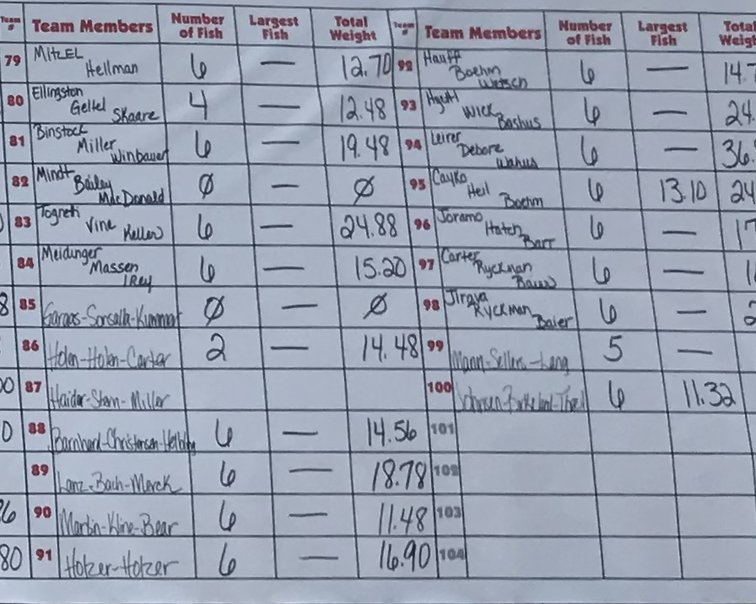 Team # Team Members Number of Fish Largest Fish Total Weight Team # Team Members Number of Fish Largest Fish Total
79 Mitzel Hellman 6 — 12.70 92 Hauff Boehm Wetsch 6 — 14.7
80 Ellingston Geltel Skaare 4 — 12.48 93 Wick Bashus 6 — 24.
81 Binstock Miller Winbauer 6 — 19.48 94 Leirer Debore Wahus 6 — 36.
82 Mindt Bailey MacDonald Ø — Ø 95 Cayko Heil Boehm 6 13.10 24
83 Togneti Vine Keller 6 — 24.88 96 Joramo Hatch Barr 6 — 17
84 Meidinger Massen 6 — 15.20 97 Carter Ryckman 6 —
85 Ø — Ø 98 Jiraya Ryckman Baier 6 —
86 Holen-Holen-Carter 2 — 14.48 99 Mann-Sellers-Lang 5 —
87 Haider-Stern-Miller 100 6 11.32
88 Barnhard-Christensen-Helbling 6 — 14.56 101
89 Lanz-Bach-Merck 6 — 18.78 102
90 Martin-Kline-Bear 6 — 11.48 103
80 91 Hotzer-Hotzer 6 — 16.90 104